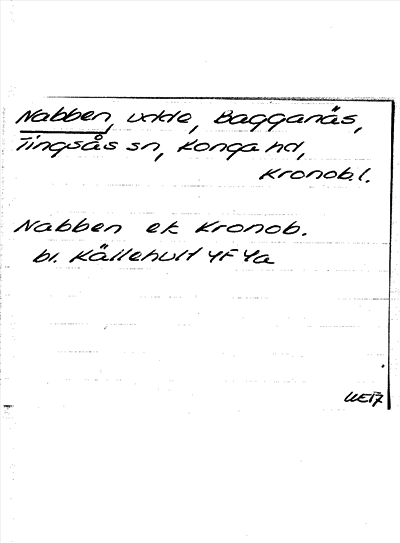 Nabben, udde, Bagganäs,
Tingsås sn, Konga hd,
Kronob.l.
Nabben ek Kronob.
bl. Källehult 4F 4a